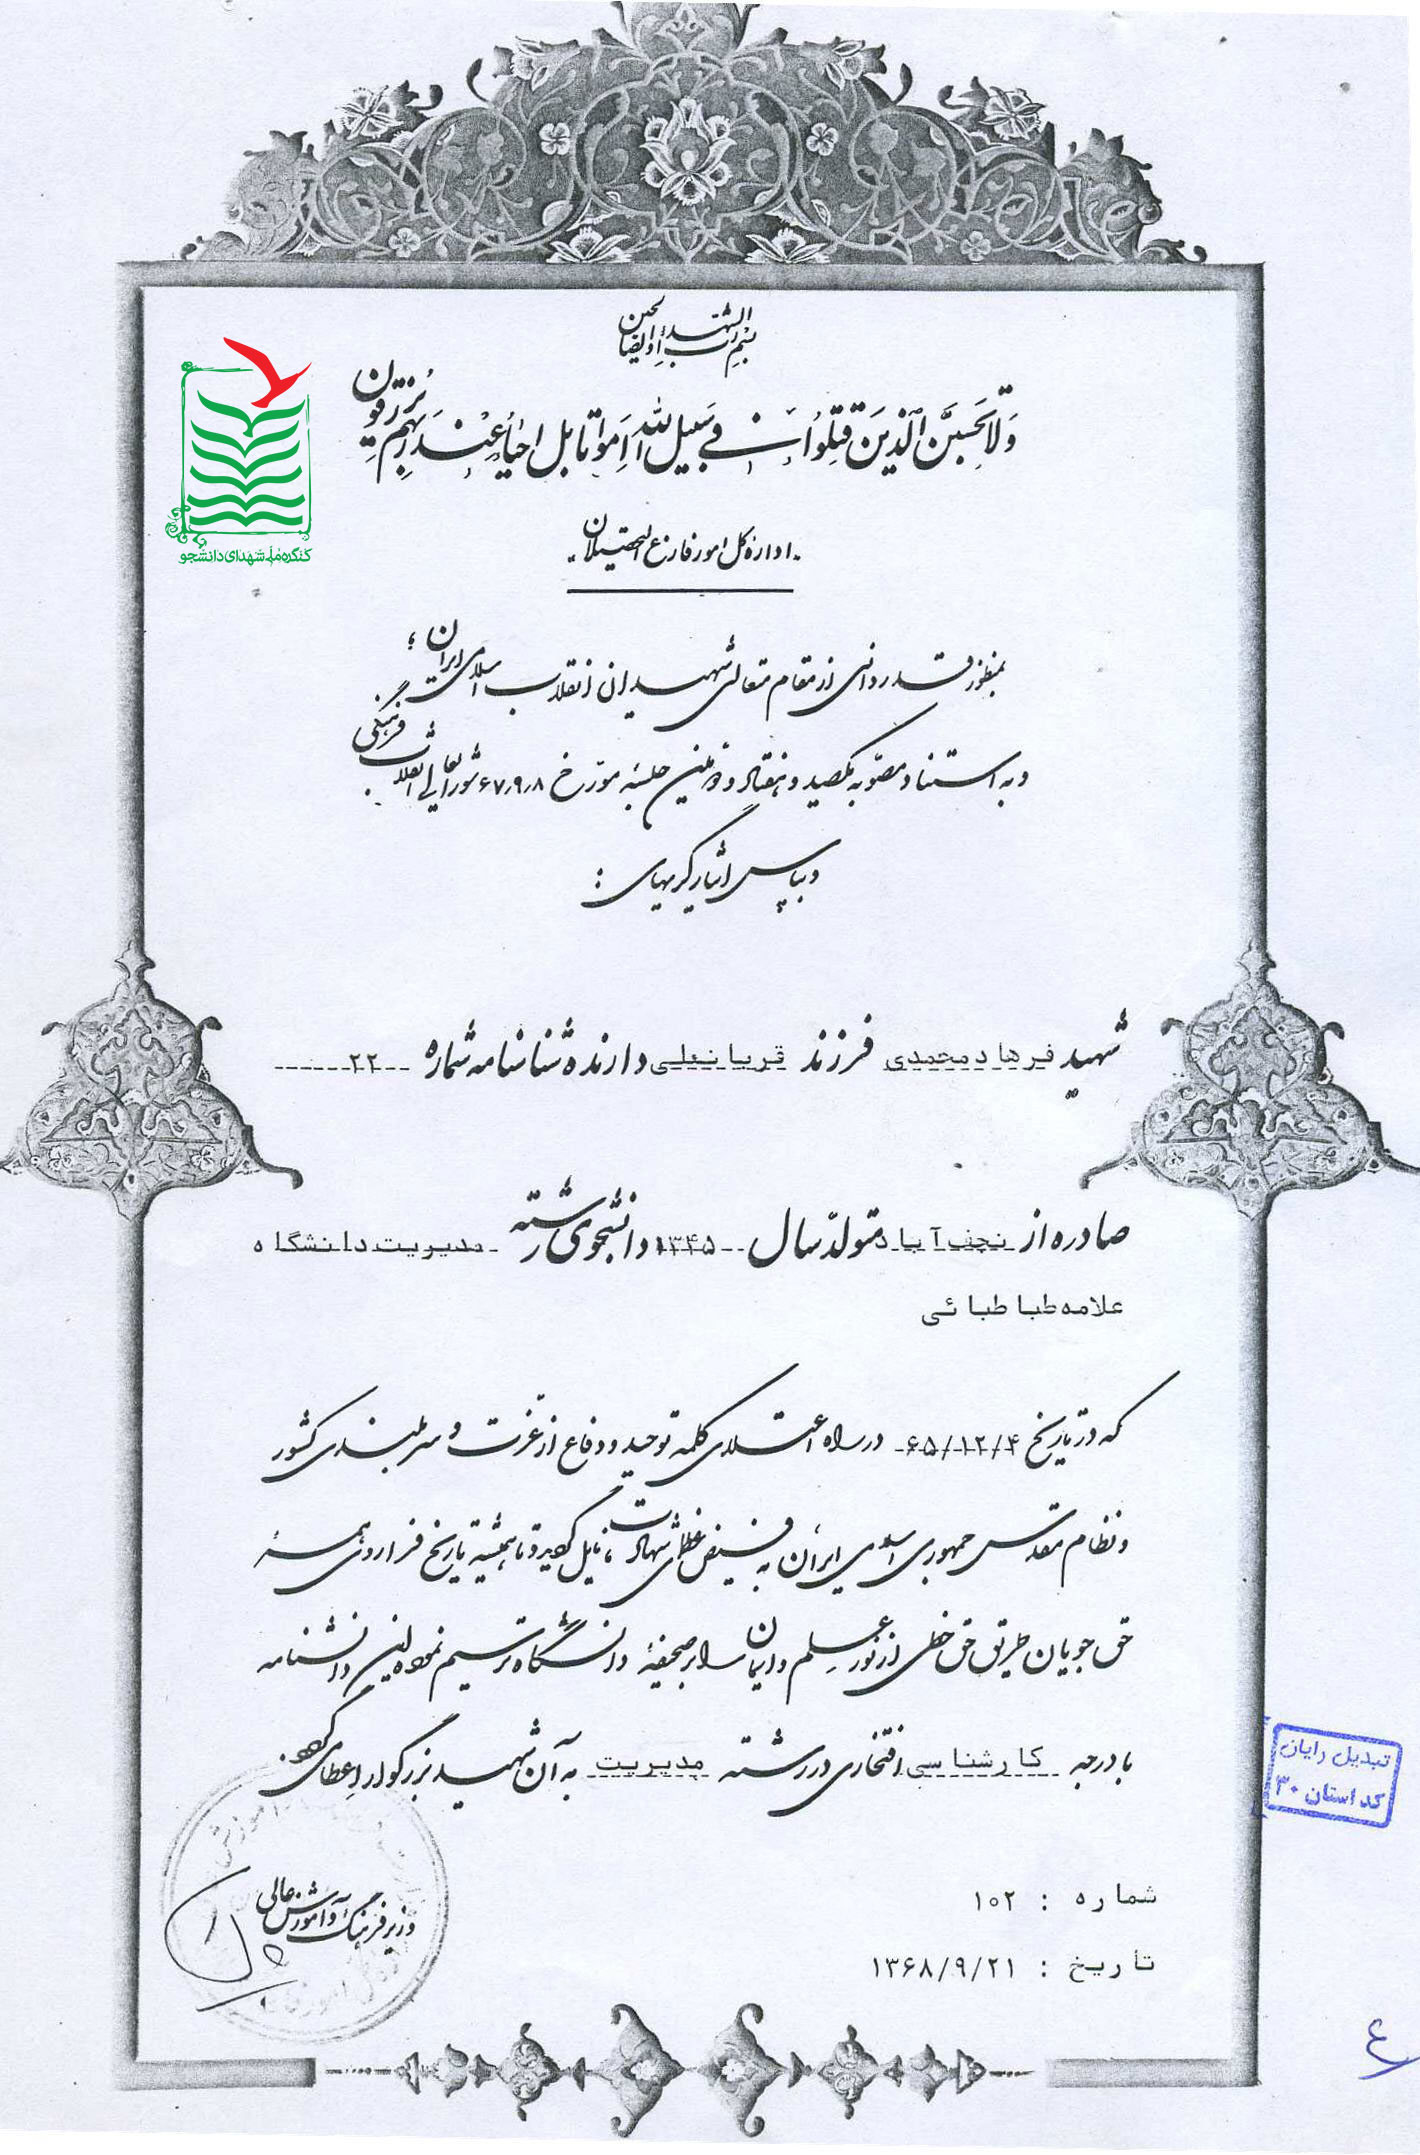 بسم رب الشهداء و الصالحین
وَلا تَحسَبَنَّ الَّذینَ قُتِلوُا فی سَبیلِ اللّهِ اَمواتا بَل اَحیاءٌ عِندَ رَبِّهِم یُرزَقُون
کنگره ملی شهدای دانشجو
اداره کل امور فارغ التحصیلان
بمنظور قدردانی از مقام متعالی شهیدان انقلاب اسلامی ایران ؛
و به استناد مصوبه یکصد و هفتاد و دومین جلسه مورّخ ۶۷٫۹٫۸ شورایعالی انقلاب فرهنگی
و بپاس ایثارگریهای :
شهید فرهاد محمدی فرزند قربانعلی دارنده شناسنامه شماره ۲۲
صادره از نجف آباد متولد سال ۱۳۴۵ دانشجوی رشته مدیریت دانشگاه
علامه طباطبائی
که در تاریخ ۶۵/۱۲/۴ در راه اعتلای کلمه توحید و دفاع از عزت و سربلندی کشور
و نظام مقدس جمهوری اسلامی ایران به فیض عظمای شهادت نایل گردید و تا همیشه تاریخ فراروی همه
حق جویان طریق حق خطی از نور علم و ایمان را بر صحیفه دانشگاه ترسیم نموده این دانشنامه
با درجه کارشناسی افتخاری در رشته مدیریت به آن شهید بزرگوار اعطا می گردد.
تبدیل رایان
کد استان ۳۰
وزیر فرهنگ و آموزش عالی
شماره : ۱۰۲
تاریخ : ۱۳۶۸/۹/۲۱